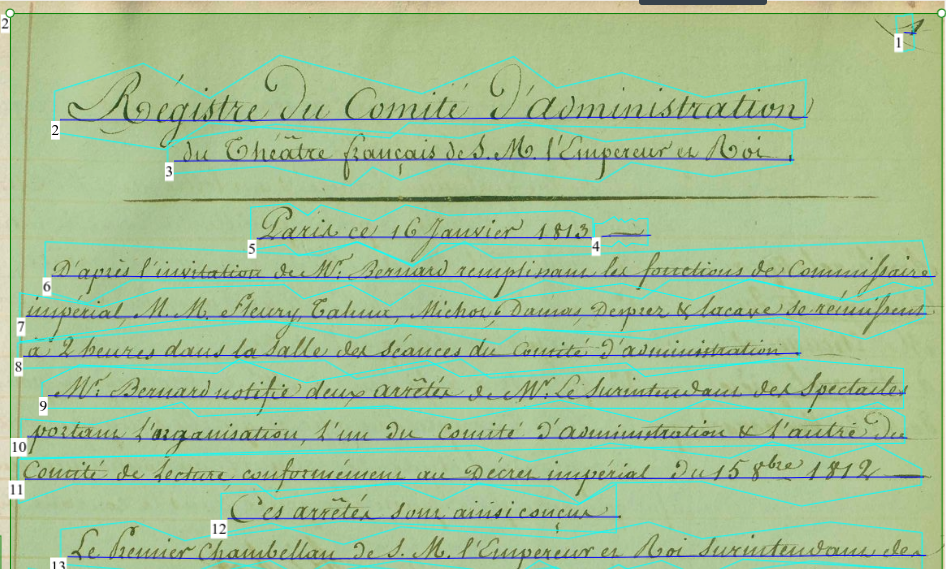 1
Régistre du Comité d'administration
du Théâtre français de S. M. l'Empereur et Roi.
Paris ce 16 Janvier 1813 —
D'après l'invitation de Mr. Bernard remplissant les fonctions de Commissaire
impérial, M. M. Fleury, Talma, Michot, Damas, Desprez & Lacave se réunissent
à 2 heures dans la salle des séances du Comité d'administration.
Mr. Bernard notifie deux arrêtés de Mr. Le Surintendant des Spectacles
portant l'organisation, l'un du Comité d'administration & l'autre du
Comité de lecture conformément au Décret impérial du 15 8bre 1812 —
Ces arrêtés sont ainsi conçus
Le Premier Chambellan de S. M. l'Empereur et Roi Surintendant des